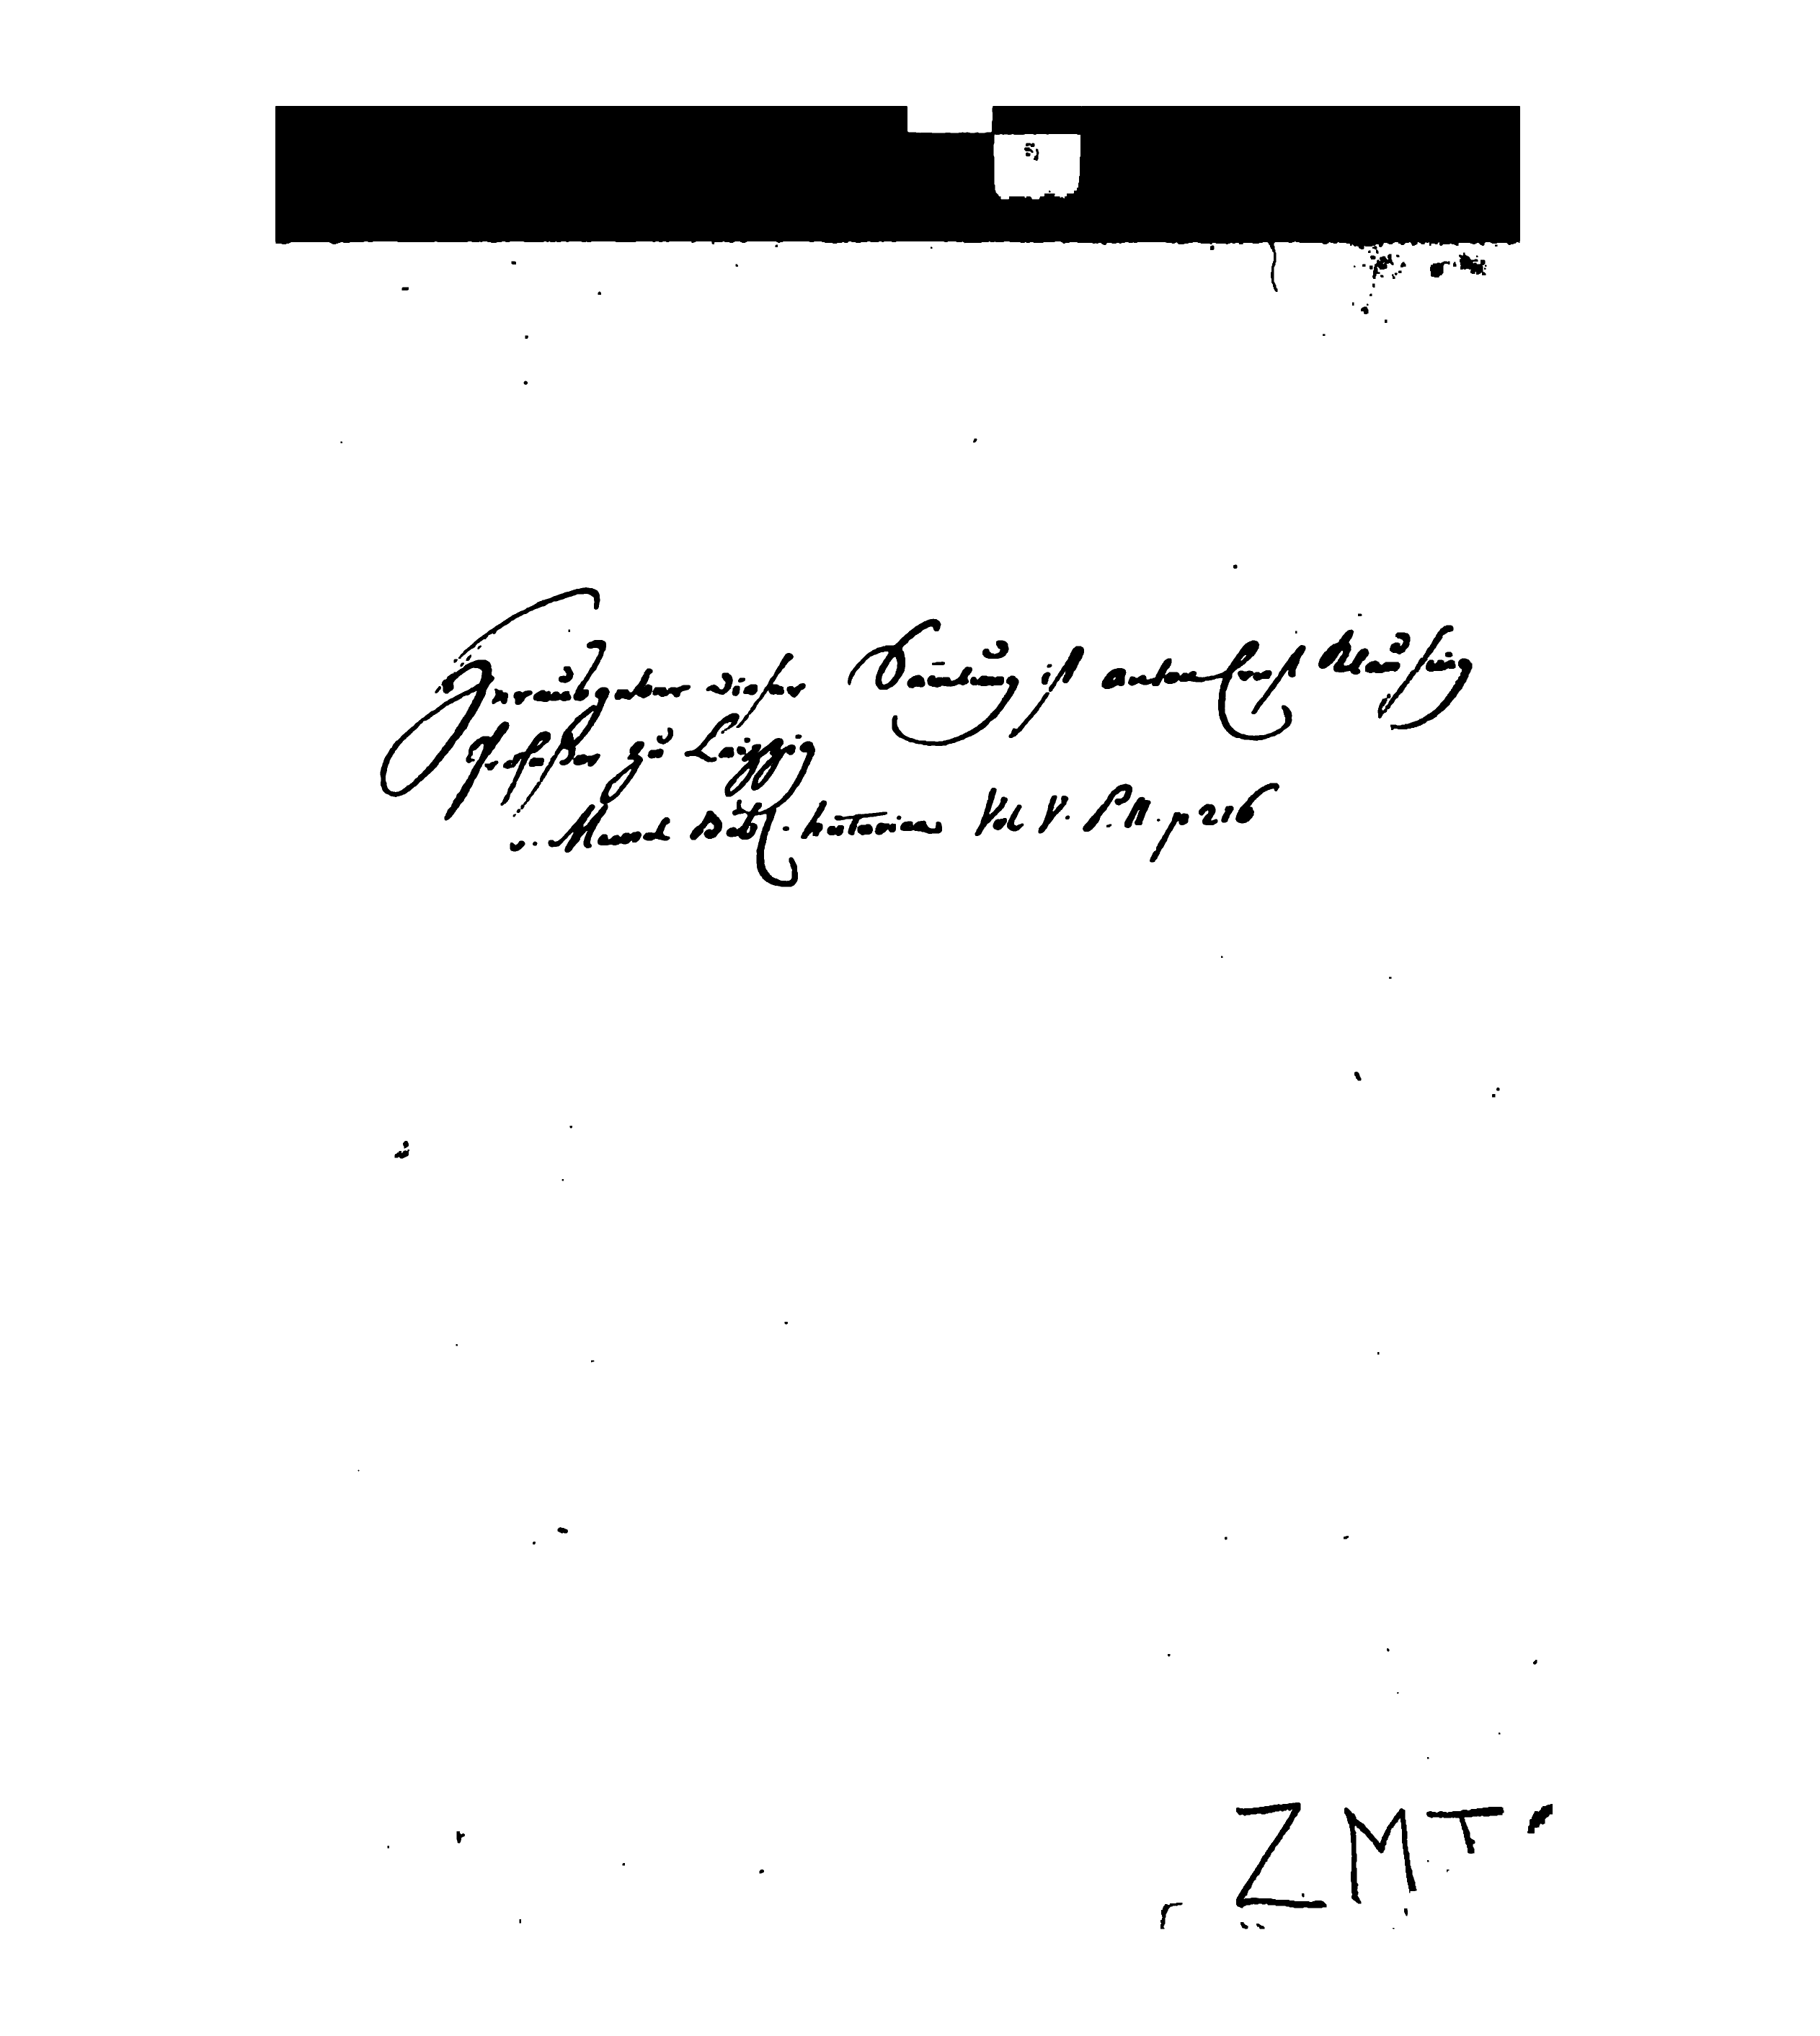 Herausgeber dieser Samlung ist Anton Ernst Klausing
Professor zu Leipzig
v. Meusel Bibl. historica Vol. V. P. II. p 216
ZMT